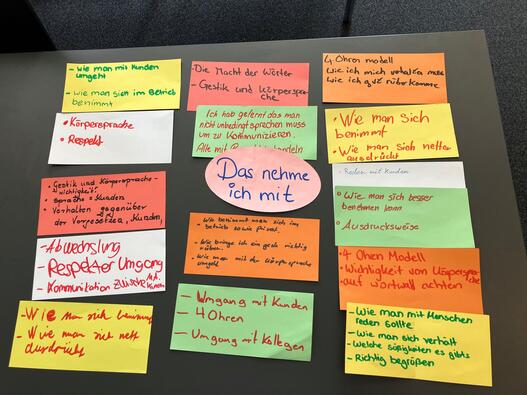 - Wie man mit Kunden
umgeht
- wie man sich im Betrieb
benimmt
- Die Macht der Wörter
- Gestik und Körperspra-
che
4 Ohren modell
Wie ich mich
wie ich rüber komme
• Körpersprache
• Respekt
Ich hab gelernt das man
nicht unbedingt sprechen muss
um zu Kommunizieren.
Alle mit
• Wie man sich
benimmt
• Wie man sich netter
ausdrückt
Das nehme
ich mit
- Reden mit Kunden
• Gestik und Körpersprache-
wichtigkeit!
• Sprache - Kunden
• Verhalten gegenüber
der Vorgesetzten, Kunden,
• Wie man sich besser
benehmen kann
• Ausdrucksweise
- Wie benimmt man sich im
betrieb sowie privat.
- Wie bringe ich ein
rüber.
- Wie man mit der Körpersprache
umgeht
- Abwechslung
- Respekter Umgang
- Kommunikation
• 4 Ohren Modell
• Wichtigkeit von Körperspra-
che
auf wortwall achten
- Wie man sich
- Wie man sich nett
ausdrückt
- Umgang mit Kunden
- 4 Ohren
- Umgang mit Kollegen
- Wie man mit Menschen
reden sollte
- Wie man sich verhält
- Welche süßigkeiten es gibts
- Richtig begrüßen